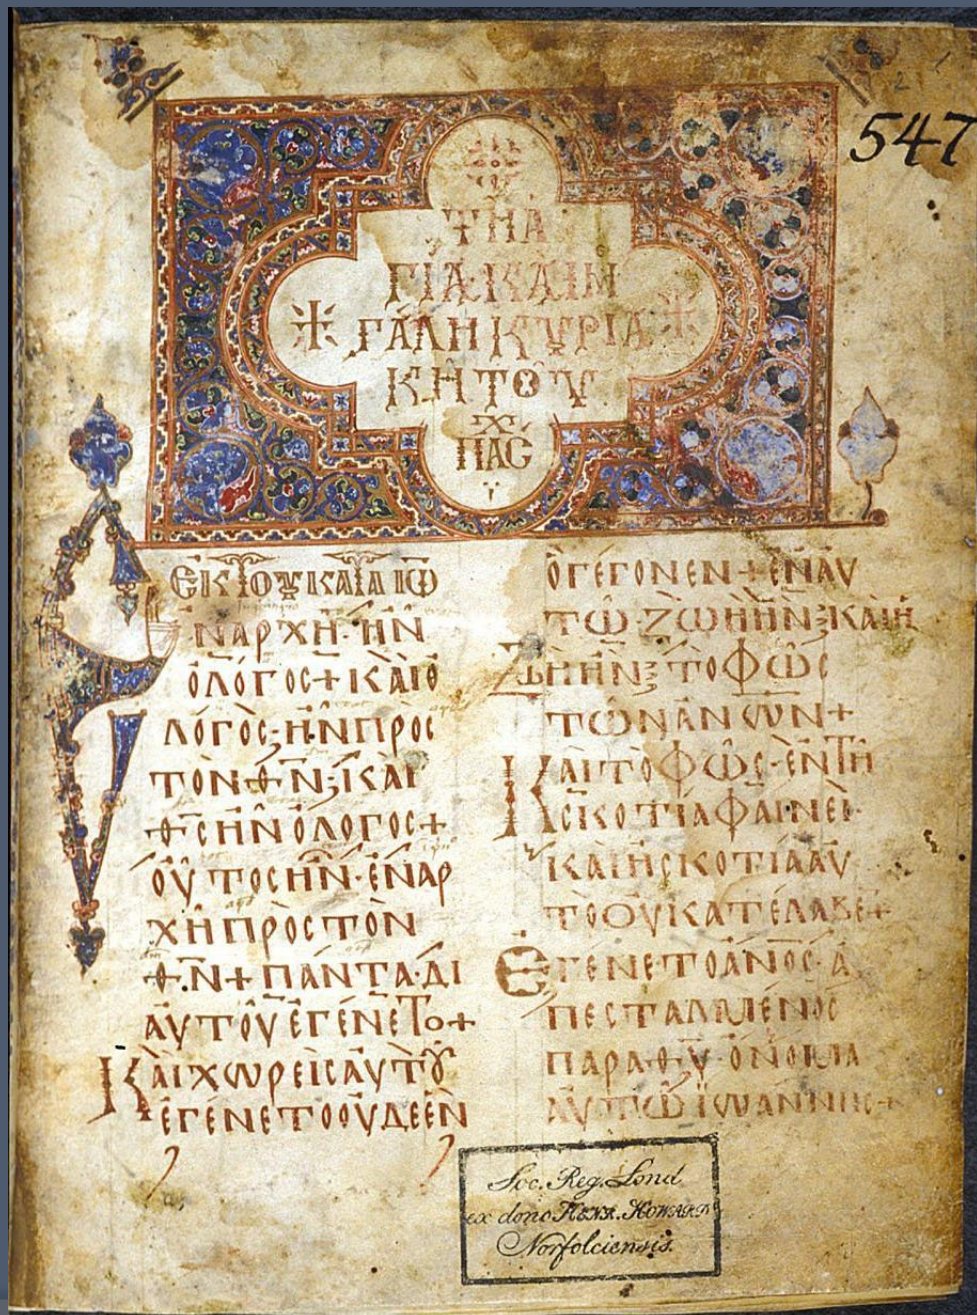 547
ΤΗ Ἁ
ΓΙΑ ΚΑΙ Μ
ΓΑΛΗ ΚΥΡΙΑ
ΚΗ ΤΟΥ
ΠΑϹ
Χ
ΕΚ ΤΟΥ ΚΑΤΑ ΙΩ
ΝΑΡΧΗ· ΗΝ
Ὁ ΛΌΓΟϹ + ΚΑΙ Ο
ΛΌΓΟϹ· ΗΝ ΠΡΟϹ
ΤΟΝ Θ̅Ν̅· ΚΑΙ
Θ̅Ϲ̅ ΗΝ Ὁ ΛΟΓΟϹ +
ΟΥΤΟϹ ΗΝ· ΕΝ ΑΡ
ΧΗ ΠΡΟϹ ΤΟΝ
Θ̅Ν̅ + ΠΑΝΤΑ ΔΙ
ΑΥΤΟΥ ΕΓΕΝΕΤΟ +
ΚΑΙ ΧΩΡΕΙϹ ΑΥΤΟΥ
ΕΓΕΝΕΤΟ ΟΥΔΕ ΕΝ
Ὁ ΓΕΓΟΝΕΝ + ΕΝ ΑΥ
ΤΩ· ΖΩΗ ΗΝ· ΚΑΙ Η
ΖΗ ΗΝ· ΤΟ ΦΩϹ
ΤΩΝ Α̅Ν̅Ω̅Ν̅ +
ΚΑΙ ΤΟ ΦΩϹ· ΕΝ ΤΗ
ϹΚΟΤΙΑ ΦΑΙΝΕΙ·
ΚΑΙ Η ϹΚΟΤΙΑ ΑΥ
ΤΟ ΟΥ ΚΑΤΕΛΑΒΕ +
ΕΓΕΝΕΤΟ Α̅Ν̅Ο̅Ϲ̅· Α
ΠΕϹΤΑΛΜΕΝΟϹ
ΠΑΡΑ Θ̅Υ̅· ΟΝΟΜΑ
ΑΥΤΩ ΙΩΑΝΝΗϹ +
Soc. Reg. Lond
ex dono HENR. HOWARD
Norfolciensis.